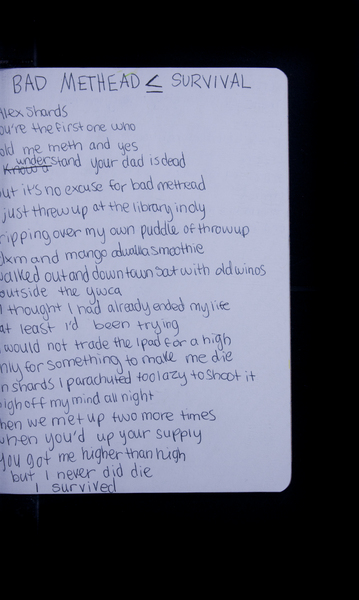 BAD METHEAD ≤ SURVIVAL
Alex Shards
you're the first one who
old me meth and yes
understand your dad is dead
but it's no excuse for bad methead
just threw up at the library indy
ripping over my own puddle of throwup
dxm and mango smoothie
walked out and downtown sat with old winos
outside the ywca
I thought I had already ended my life
at least i'd been trying
would not trade the Ipad for a high
nly for something to make me die
n shards I parachuted too lazy to shoot it
igh off my mind all night
hen we met up two more times
when you'd up your supply
you got me higher than high
but I never did die
I survived